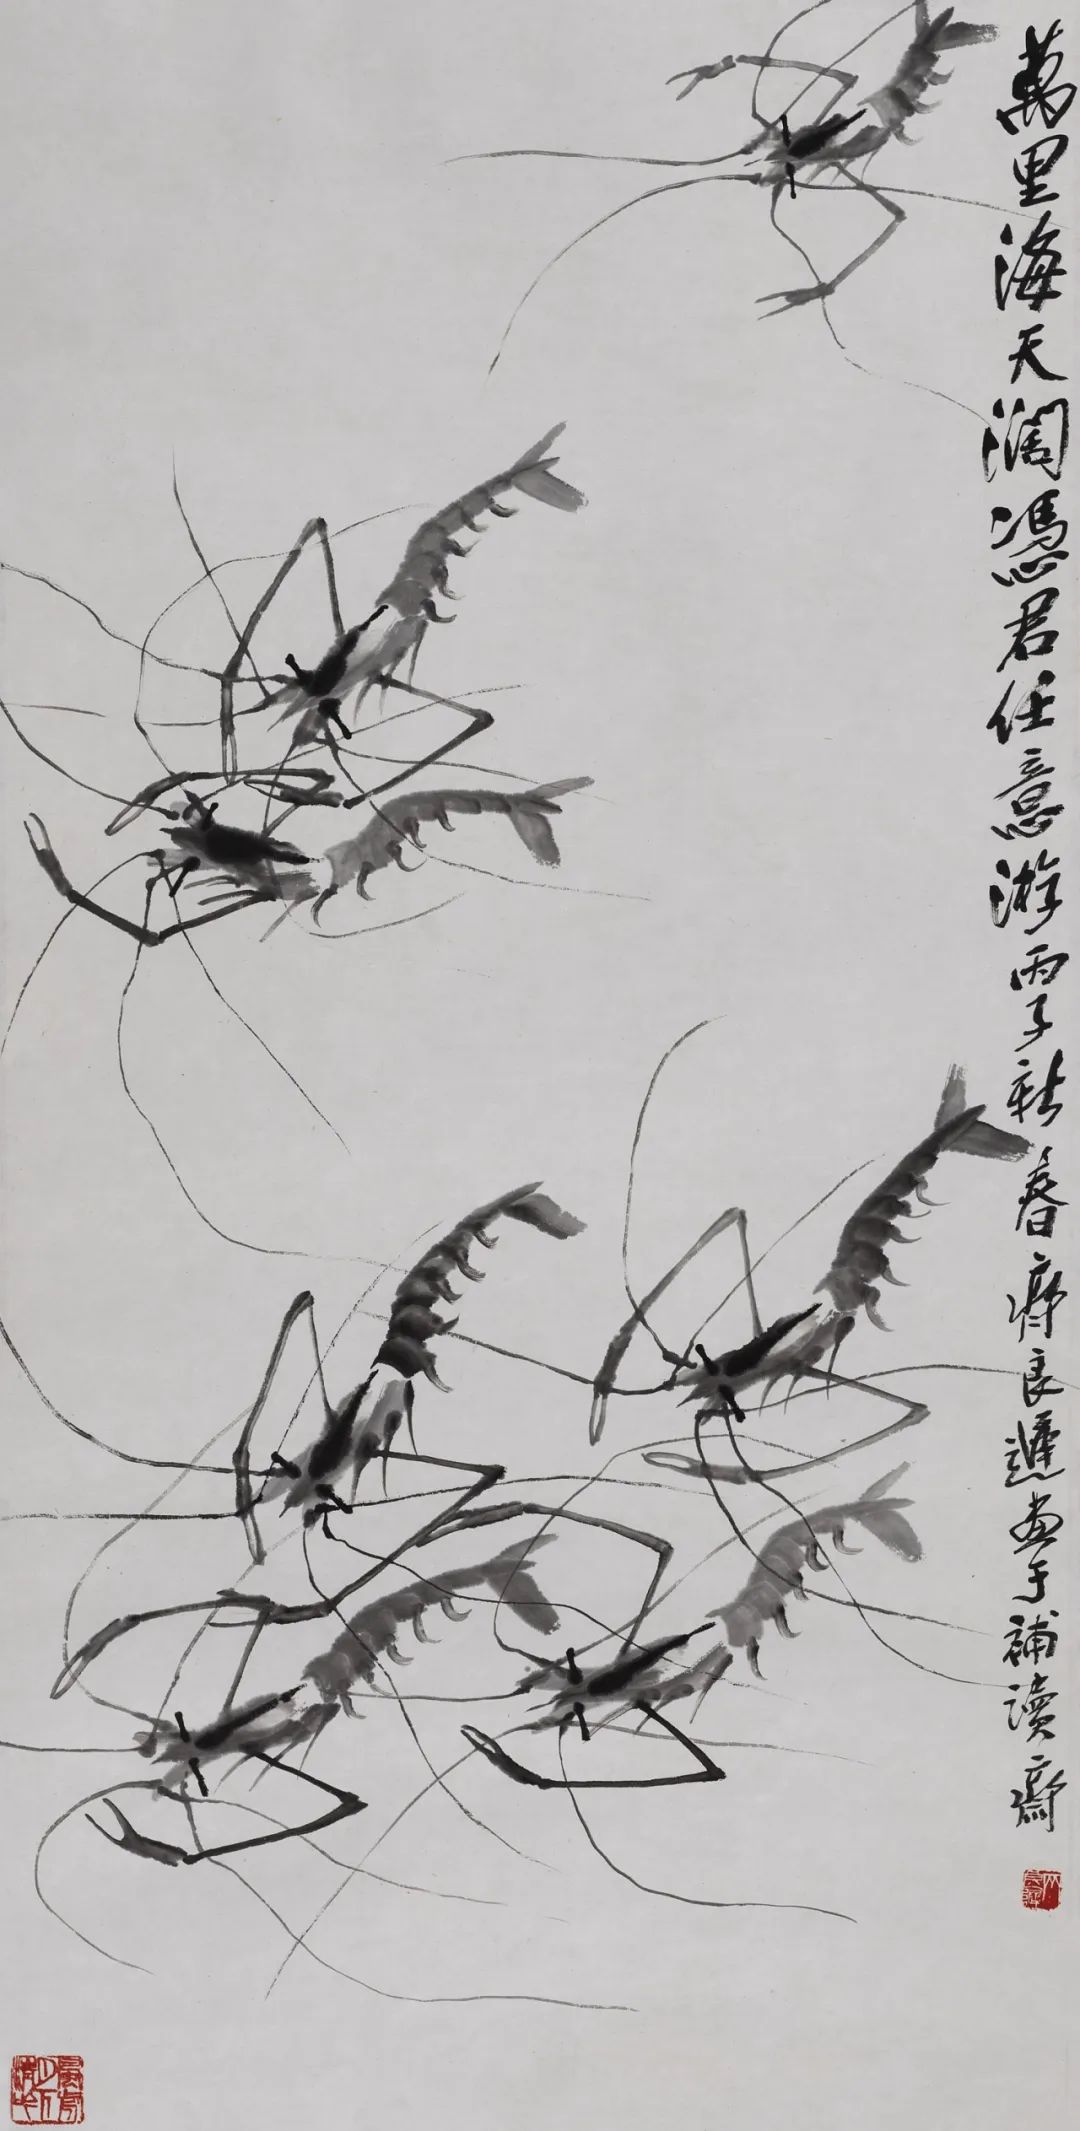 萬里海天闊憑君任意游丙子秋春齋良遲画于補讀齋